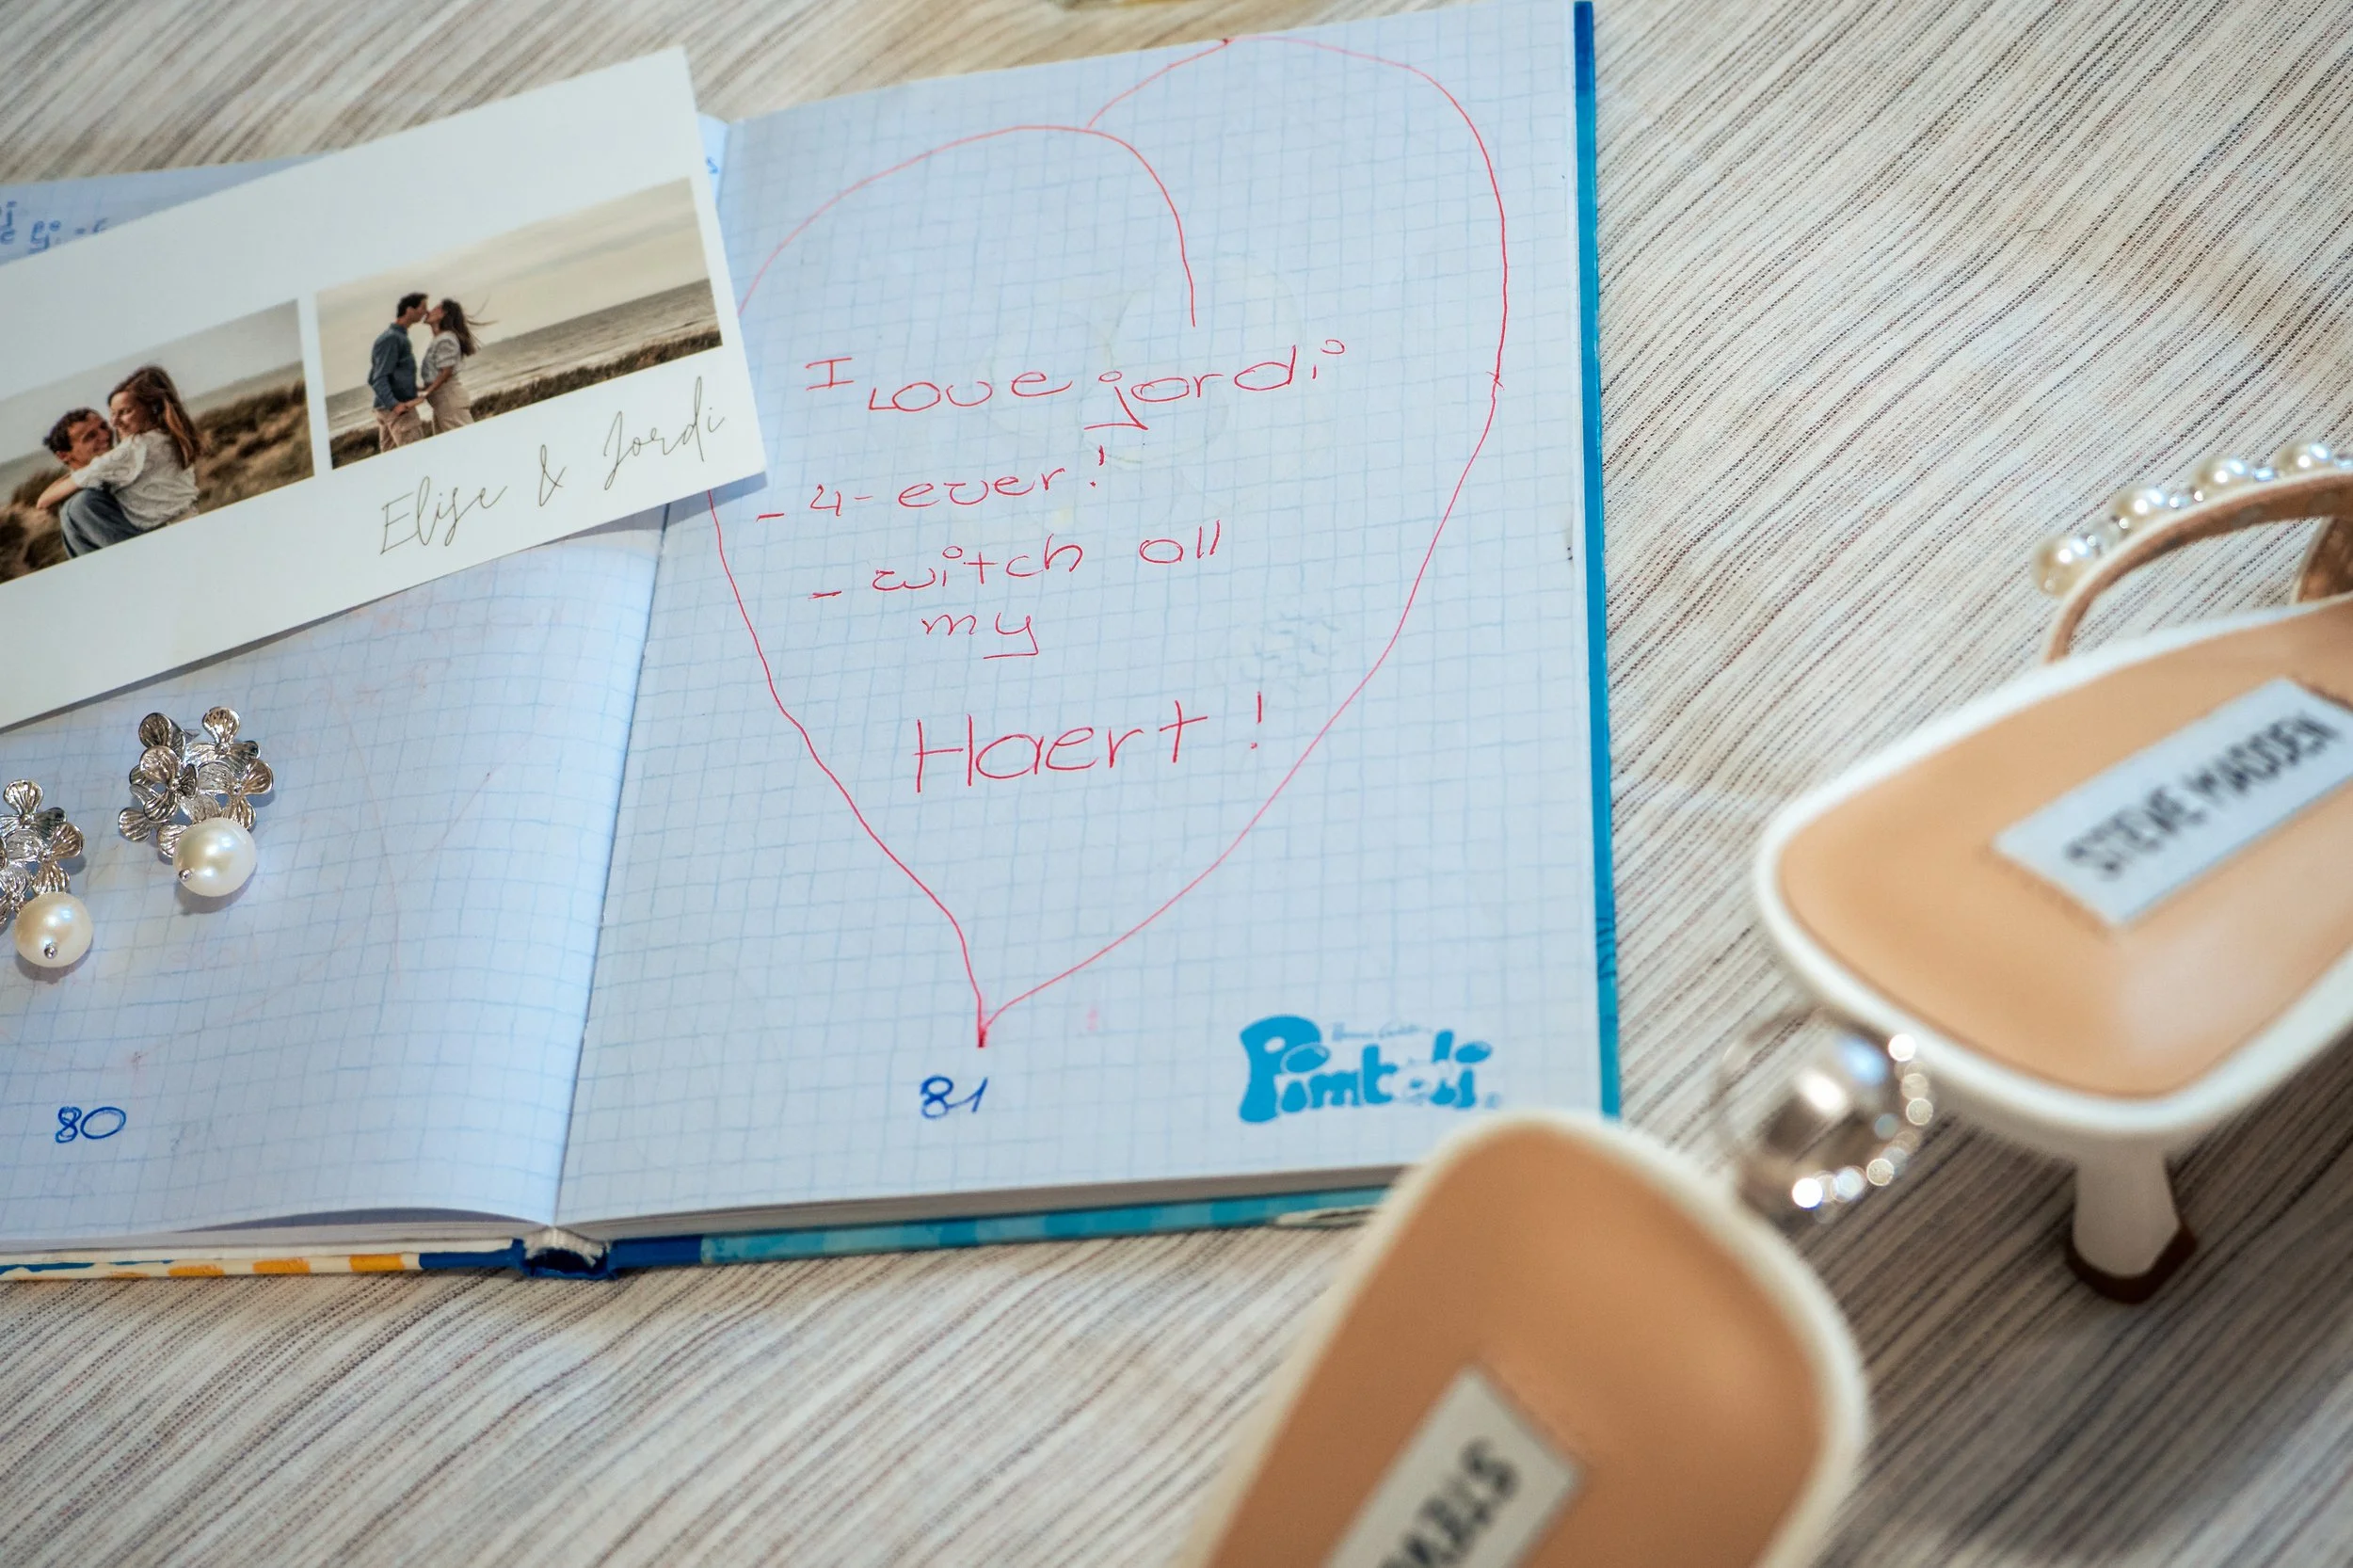 Elise & Jordi
I Love jordi
- 4-ever!
- witch all
my
Haert!
80
81
Pimboli
STEVE MADDEN
STEVE